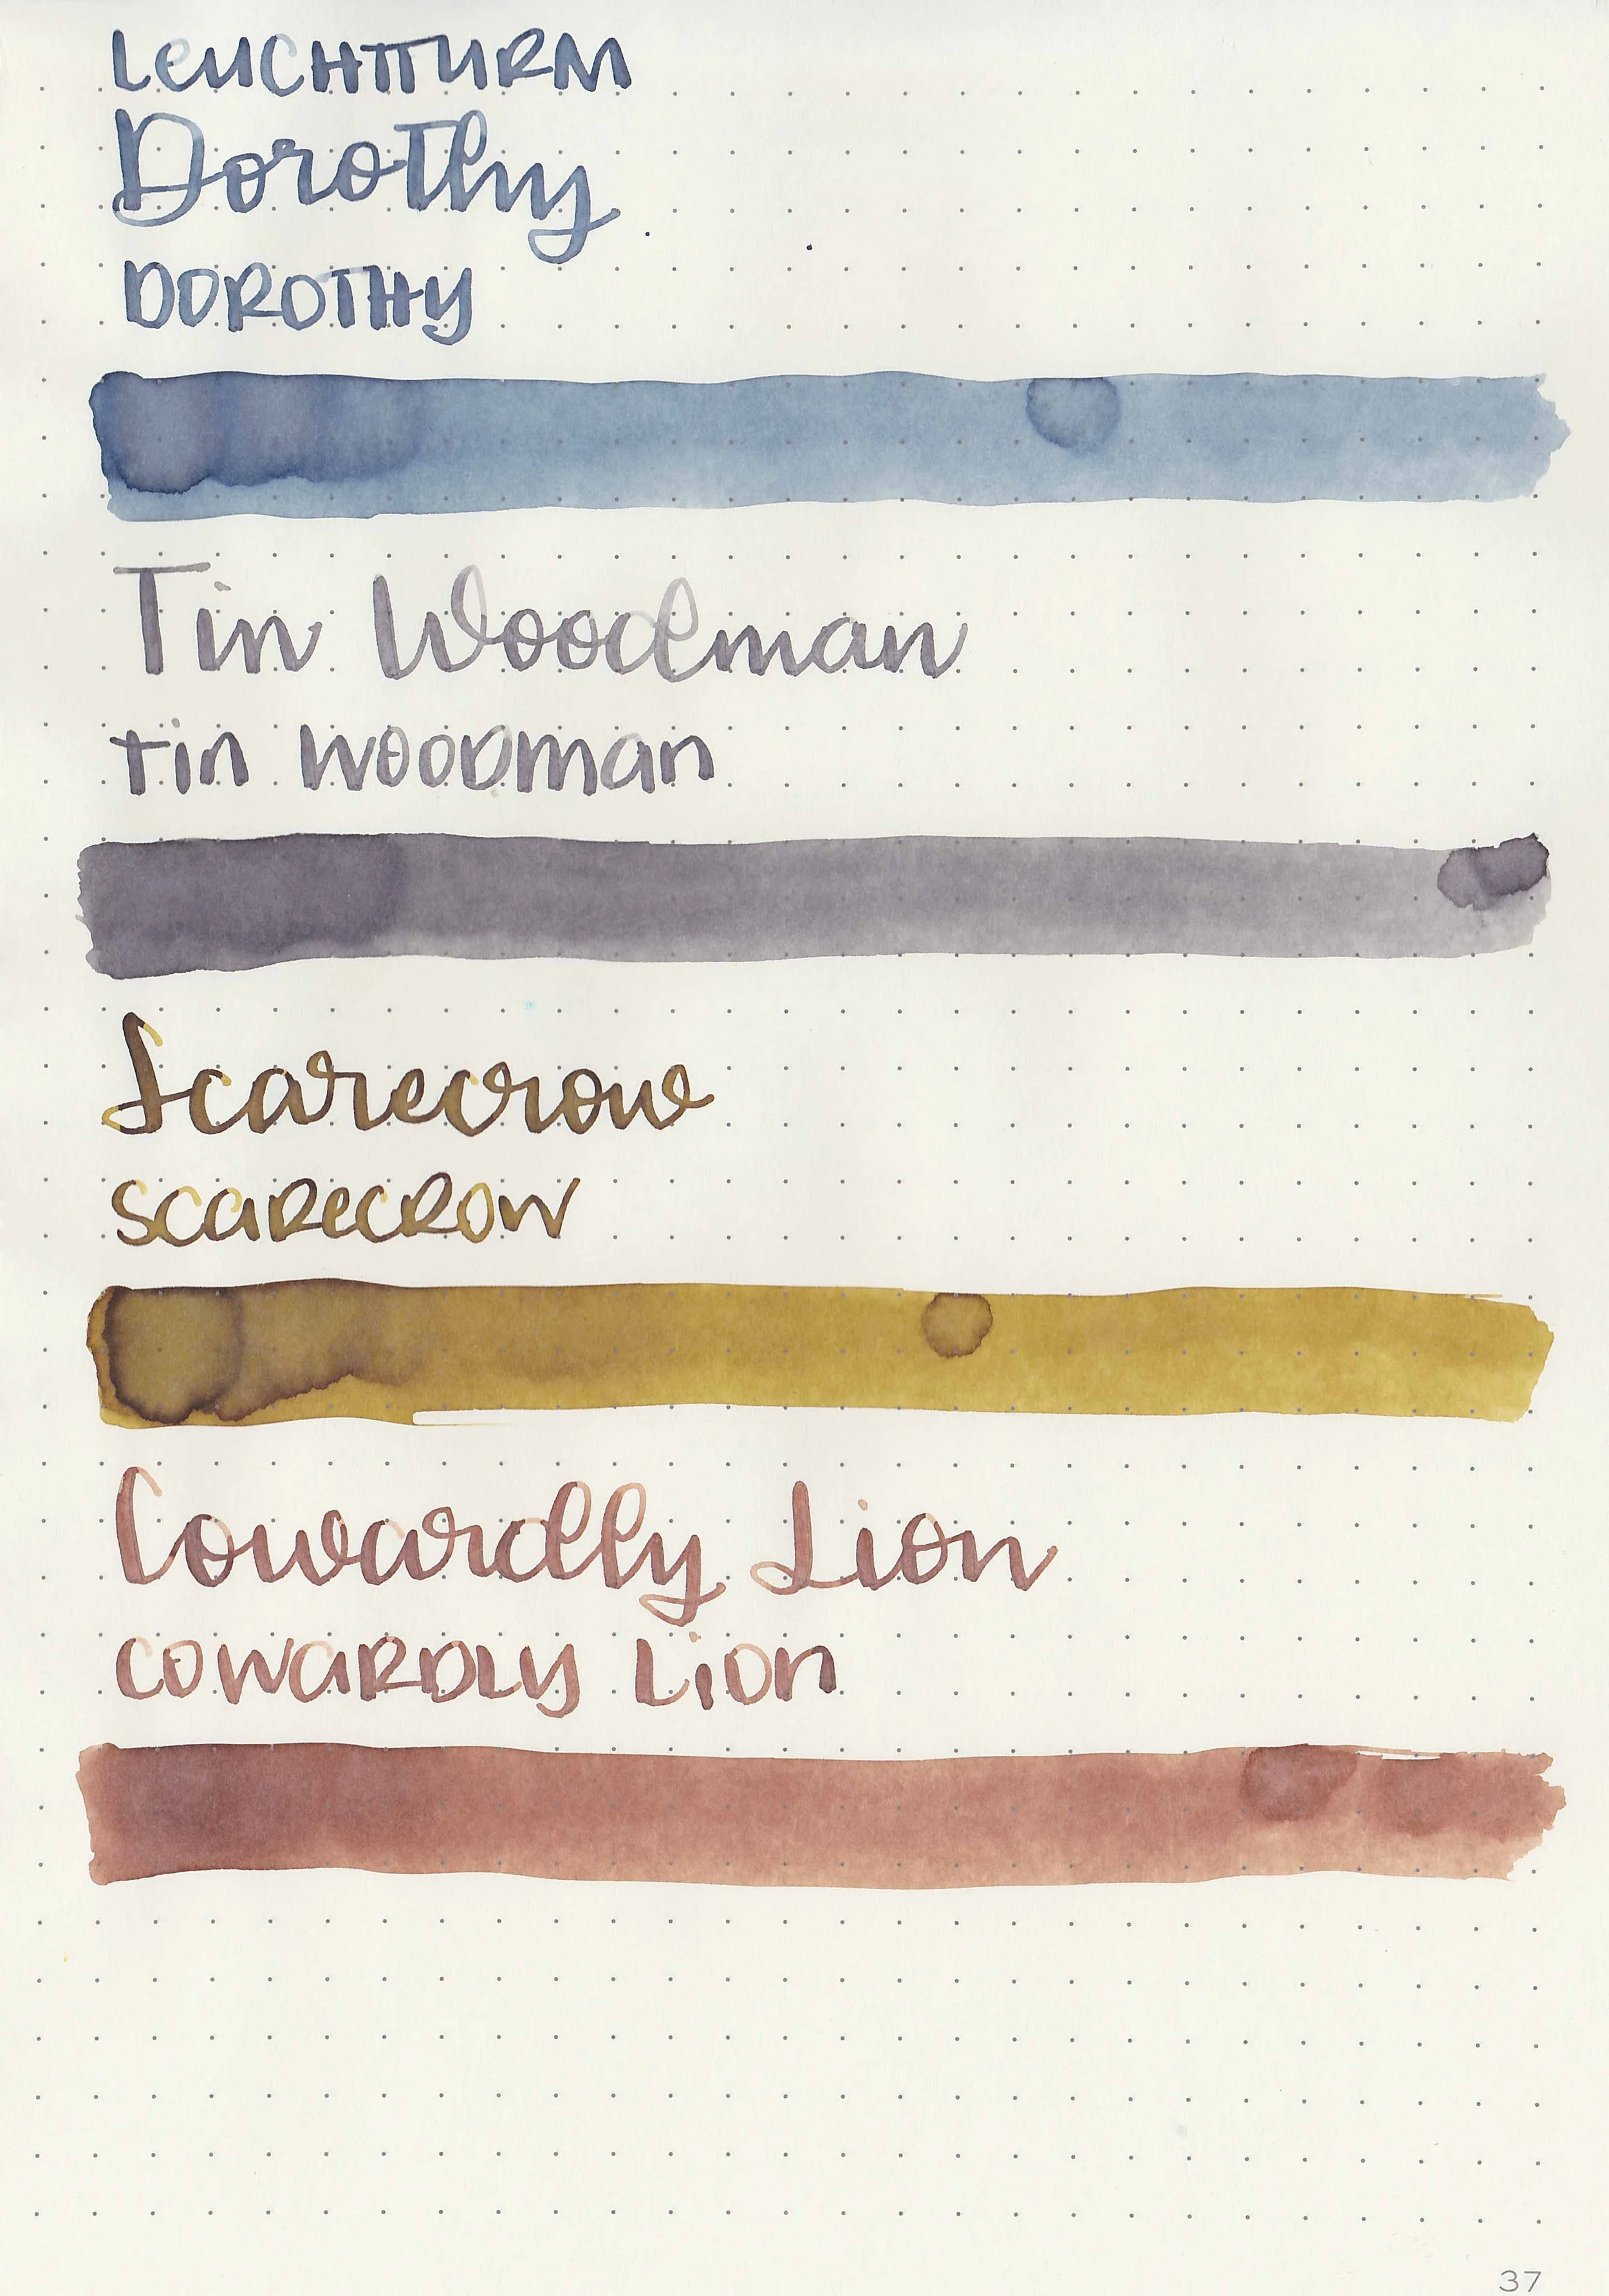 LEUCHTTURM
Dorothy
DOROTHY
Tin Woodman
tin woodman
Scarecrow
SCARECROW
Cowardly Lion
COWARDLY LION
37